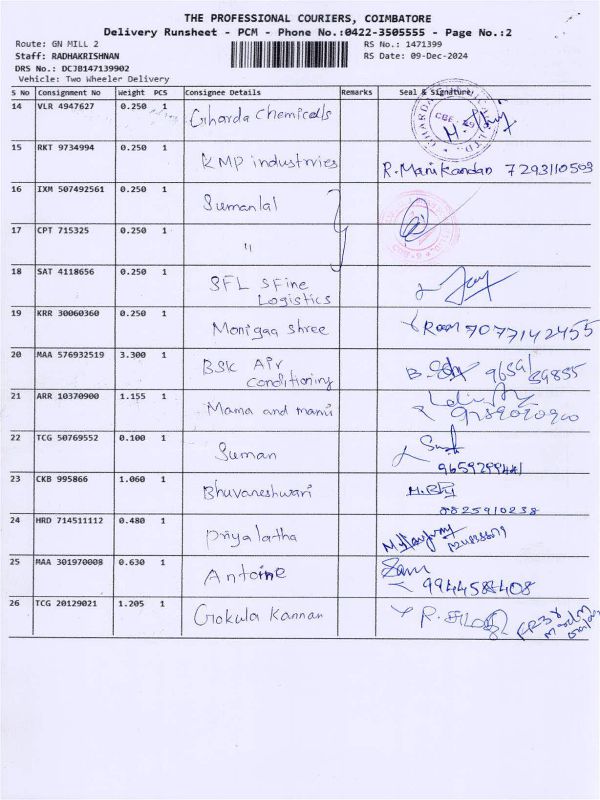 THE PROFESSIONAL COURIERS, COIMBATORE
Delivery Runsheet - PCM - Phone No.:0422-3505555 - Page No.:2
Route: GN MILL 2 RS No.: 1471399
Staff: RADHAKRISHNAN RS Date: 09-Dec-2024
DRS No.: DCJB147139902
Vehicle: Two Wheeler Delivery
S No AWB No Weight PCS Consignee Details Remarks Seal & Signature
14 VLR 4947627 0.250 1 Gharda Chemicals
15 RKT 9734994 0.250 1 KMP industrries R. Manikandan 7293110503
16 IXM 507492561 0.250 1 Sumanlal
17 CPT 715325 0.250 1 "
18 SAT 4118656 0.250 1 SFL SFine
Logistics
19 KRR 30060360 0.250 1 Monigaa Shree Ram 7077142455
20 MAA 576932519 3.300 1 BSK Air
Conditioning
21 ARR 10370900 1.155 1 Mama and mami
22 TCG 50769552 0.100 1 Suman
23 CKB 995866 1.060 1 Bhuvaneshwari
8825910238
24 HRD 714511112 0.480 1 Priya latha
25 MAA 301970008 0.630 1 Antoine
9944584408
26 TCG 20129021 1.205 1 Gokula Kannan